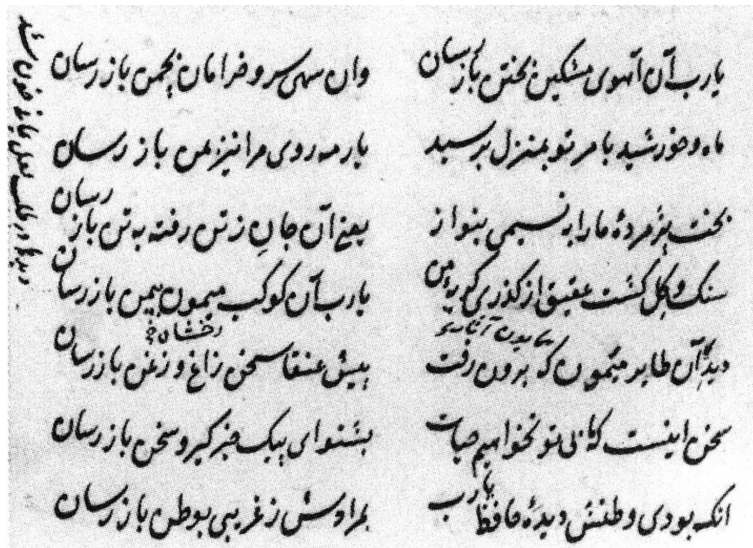 یارب آن آهوی مشکین بختن بازرسان وان سهی سرو خرامان بچمن بازرسان
ماه و خورشید بامر تو بمنزل برسید یار مه روی مرا نیز بمن باز رسان
بخت پژمردهٔ ما را بنسیمی بنواز یعنی آن جانِ ز تن رفته به تن باز رسان
سنگ و گل گشت عقیق از گذری گریهٔ من یارب آن کوکب میمون بیمن بازرسان
رخشان؟
دیدی آن طایر میمون که برون رفت پیش عنقا سخن زاغ و زغن بازرسان
سخن اینست که ما بی تو نخواهیم حیات بشنو ای پیک خبرگیر و سخن بازرسان
آنکه بودی وطنش دیدهٔ حافظ یارب بمرادش ز غریبی بوطن بازرسان
دیدها در طلب لعل یمانی خون شد